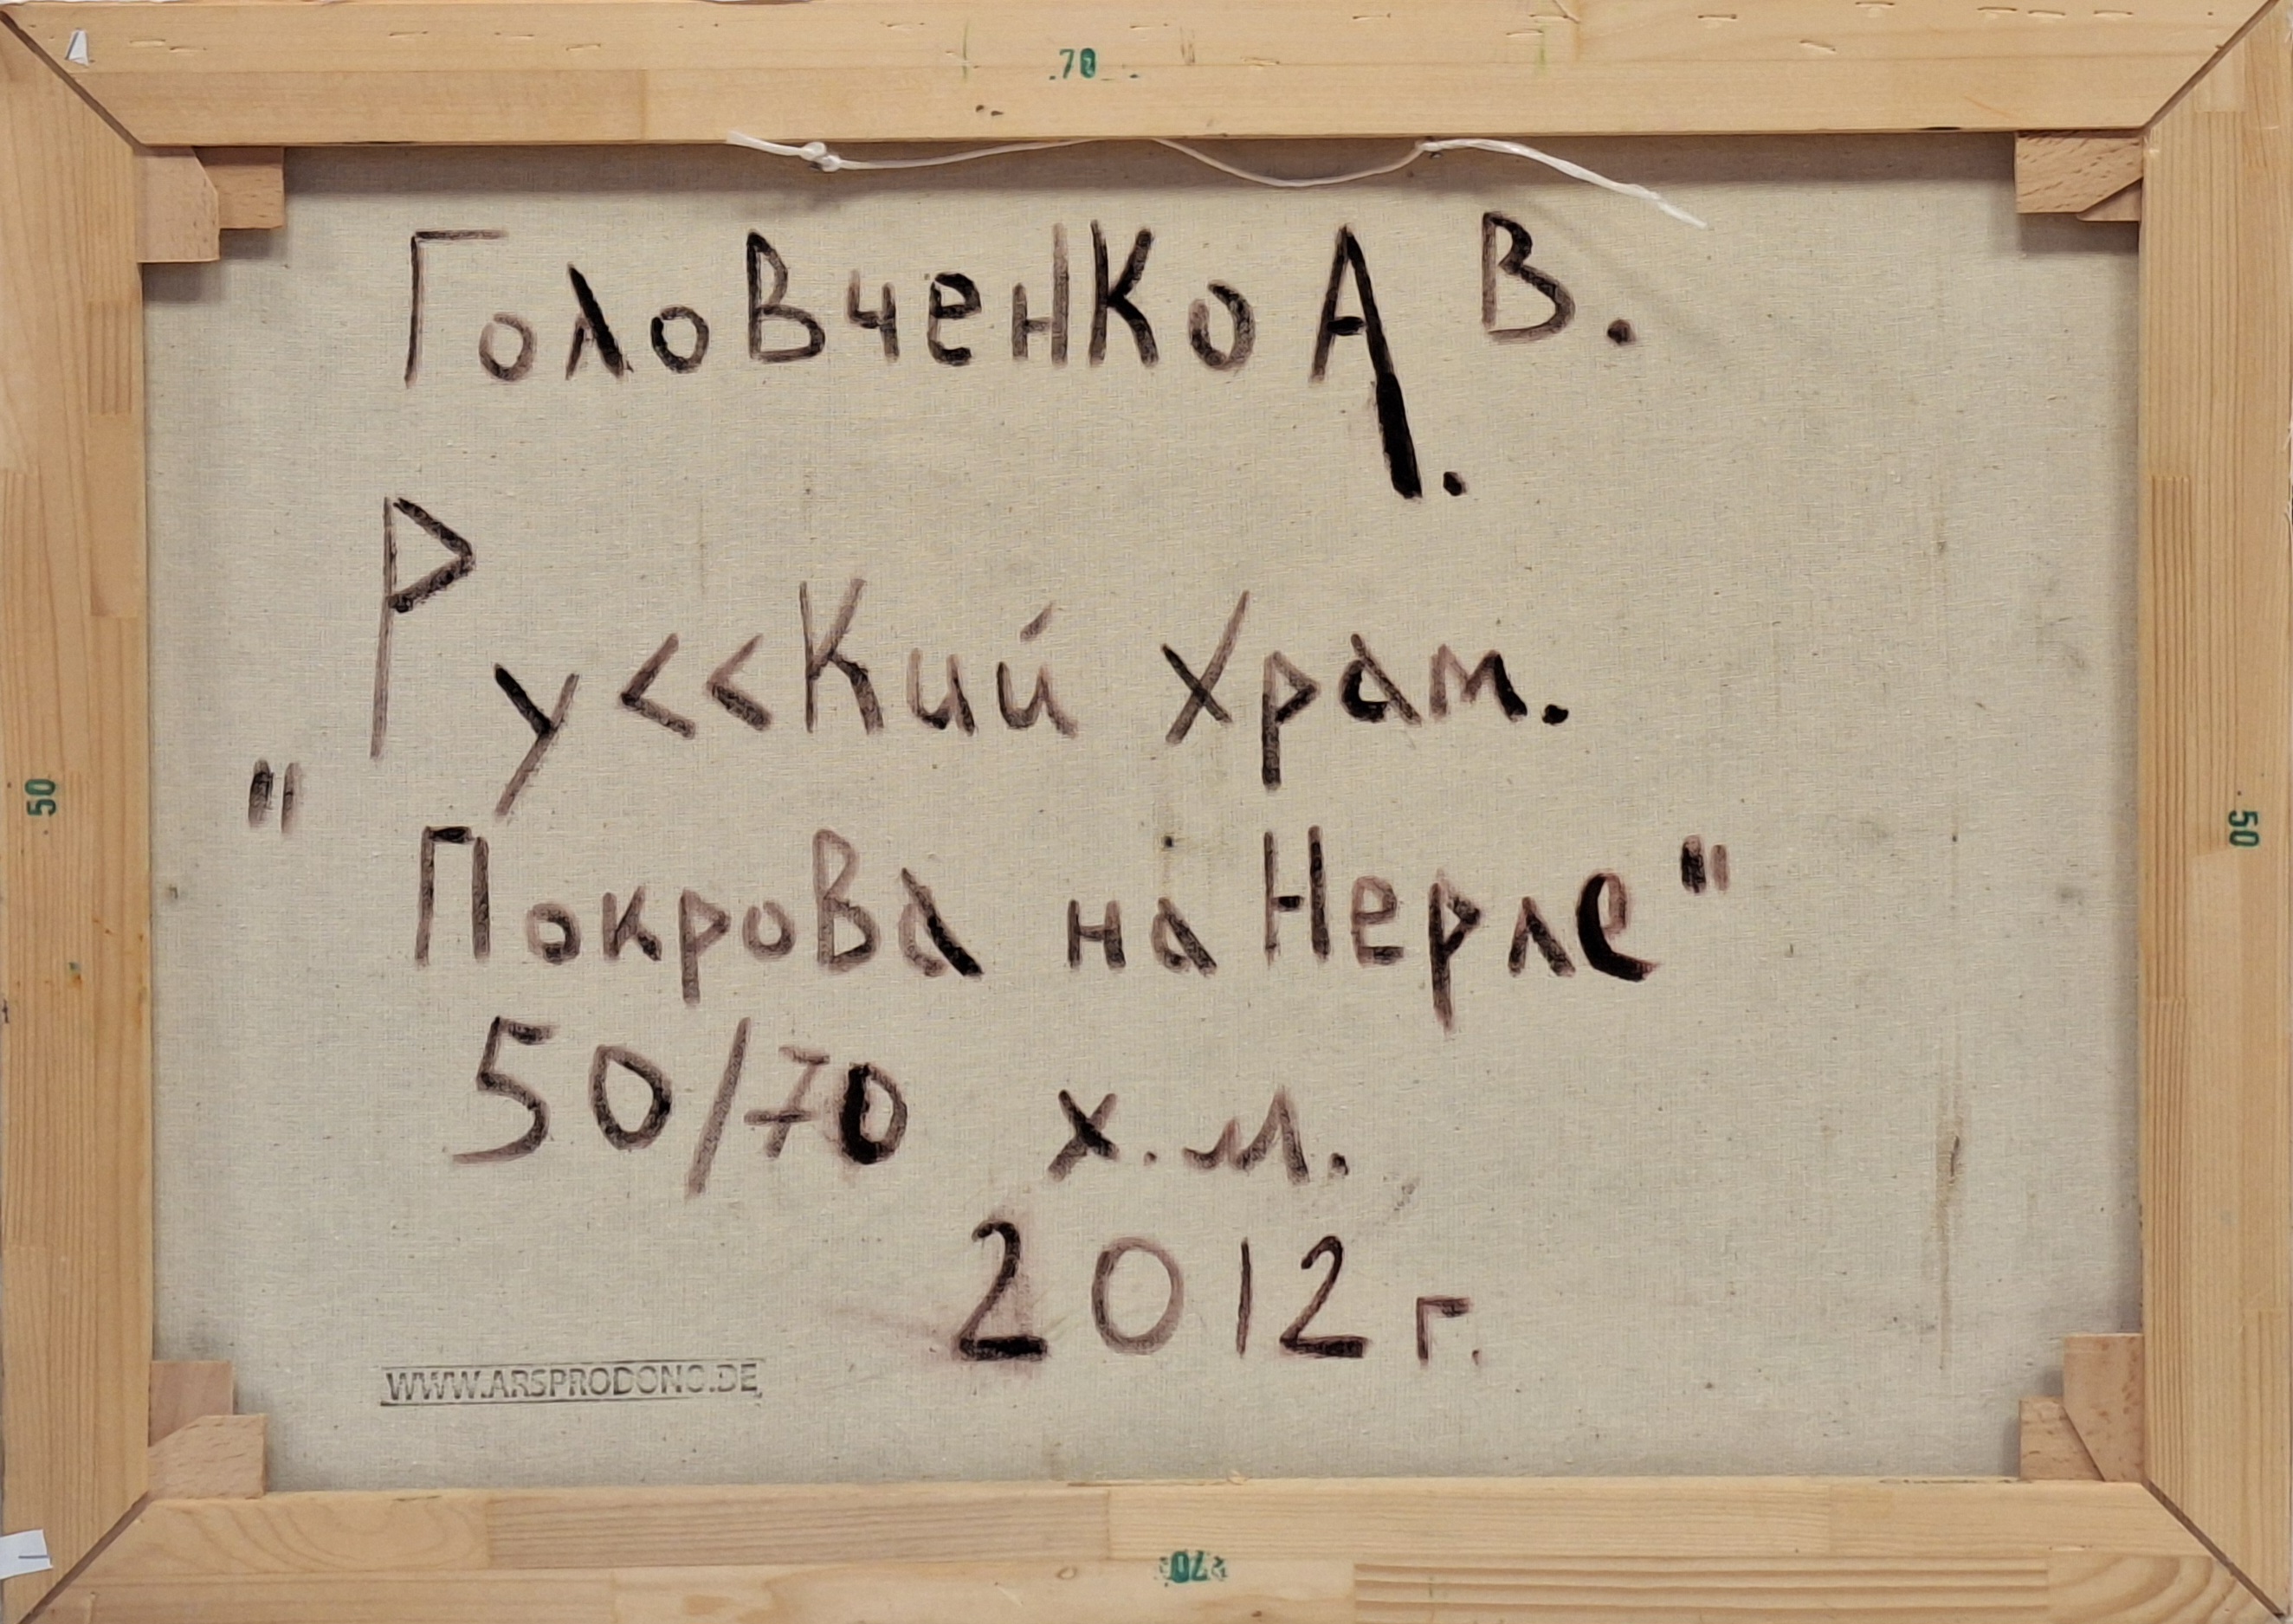 70
Головченко А. В.
Русский храм.
"Покрова на Нерле"
50/70 х.м.
2012 г.
WWW.ARSPRODONO.DE
50
50
70